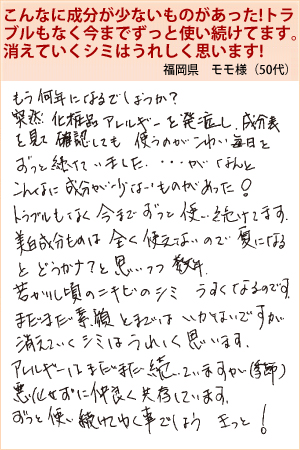 こんなに成分が少ないものがあった!トラ
ブルもなく今までずっと使い続けてます。
消えていくシミはうれしく思います!
福岡県　モモ様（50代）
もう何年になるでしょうか？
突然 化粧品アレルギーを発症し、成分表
を見て 確認しても 使うのがこわい毎日を
ずっと続けていました．・・・が ほんと
こんなに成分が少ないものがあった！
トラブルもなく 今まで ずっと 使い続けてます．
美白成分ものは 全く使えないので 夏になる
と どうかナ？と 思いつつ 数年．
若かりし頃のニキビのシミ うすくなるのです．
まだまだ 素顔とまでは いかないですが
消えていくシミは うれしく思います．
アレルギーは まだまだ 続いていますが
悪化せずに 仲良く 共存しています．
ずっと使い続けてゆく事でしょう きっと！